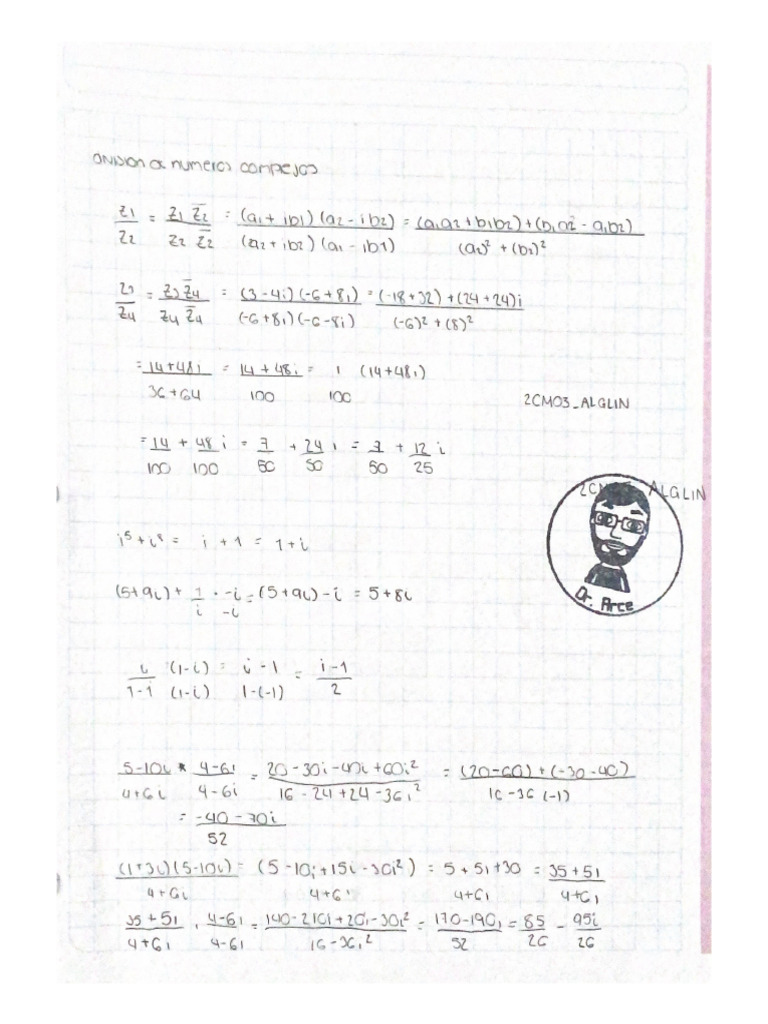 Division de numeros complejos
z1/z2 = z1 z̄2 / z2 z̄2 = (a1 + ib1)(a2 - ib2) / (a2 + ib2)(a1 - ib1) = (a1a2 + b1b2) + (b1a2 - a1b2) / (a2)² + (b2)²
z3/z4 = z3 z̄4 / z4 z̄4 = (3 - 4i)(-6 + 8i) / (-6 + 8i)(-6 - 8i) = (-18 + 32) + (24 + 24)i / (-6)² + (8)²
= 14 + 48i / 36 + 64 = 14 + 48i / 100 = 1 / 100 (14 + 48i)
2CM03_ALGLIN
= 14/100 + 48/100 i = 7/50 + 24/50 i = 7/50 + 12/25 i
2CM03_ALGLIN
i⁵ + i⁸ = i + 1 = 1 + i
(5 + 9i) + 1/i · -i/-i = (5 + 9i) - i = 5 + 8i
Dr. Arce
i/1-i · (1-i)/(1-i) = i - 1 / 1-(-1) = i - 1 / 2
5-10i / 4+6i * 4-6i / 4-6i = 20 - 30i - 40i + 60i² / 16 - 24 + 24 - 36i² = (20-60) + (-30-40) / 16 - 36 (-1)
= -40 - 70i / 52
(1+3i)(5-10i) / 4+6i = (5 - 10i + 15i - 30i²) / 4+6i = 5 + 5i + 30 / 4+6i = 35 + 5i / 4+6i
35 + 5i / 4+6i · 4-6i / 4-6i = 140 - 210i + 20i - 30i² / 16 - 36i² = 170 - 190i / 52 = 85/26 - 95i/26